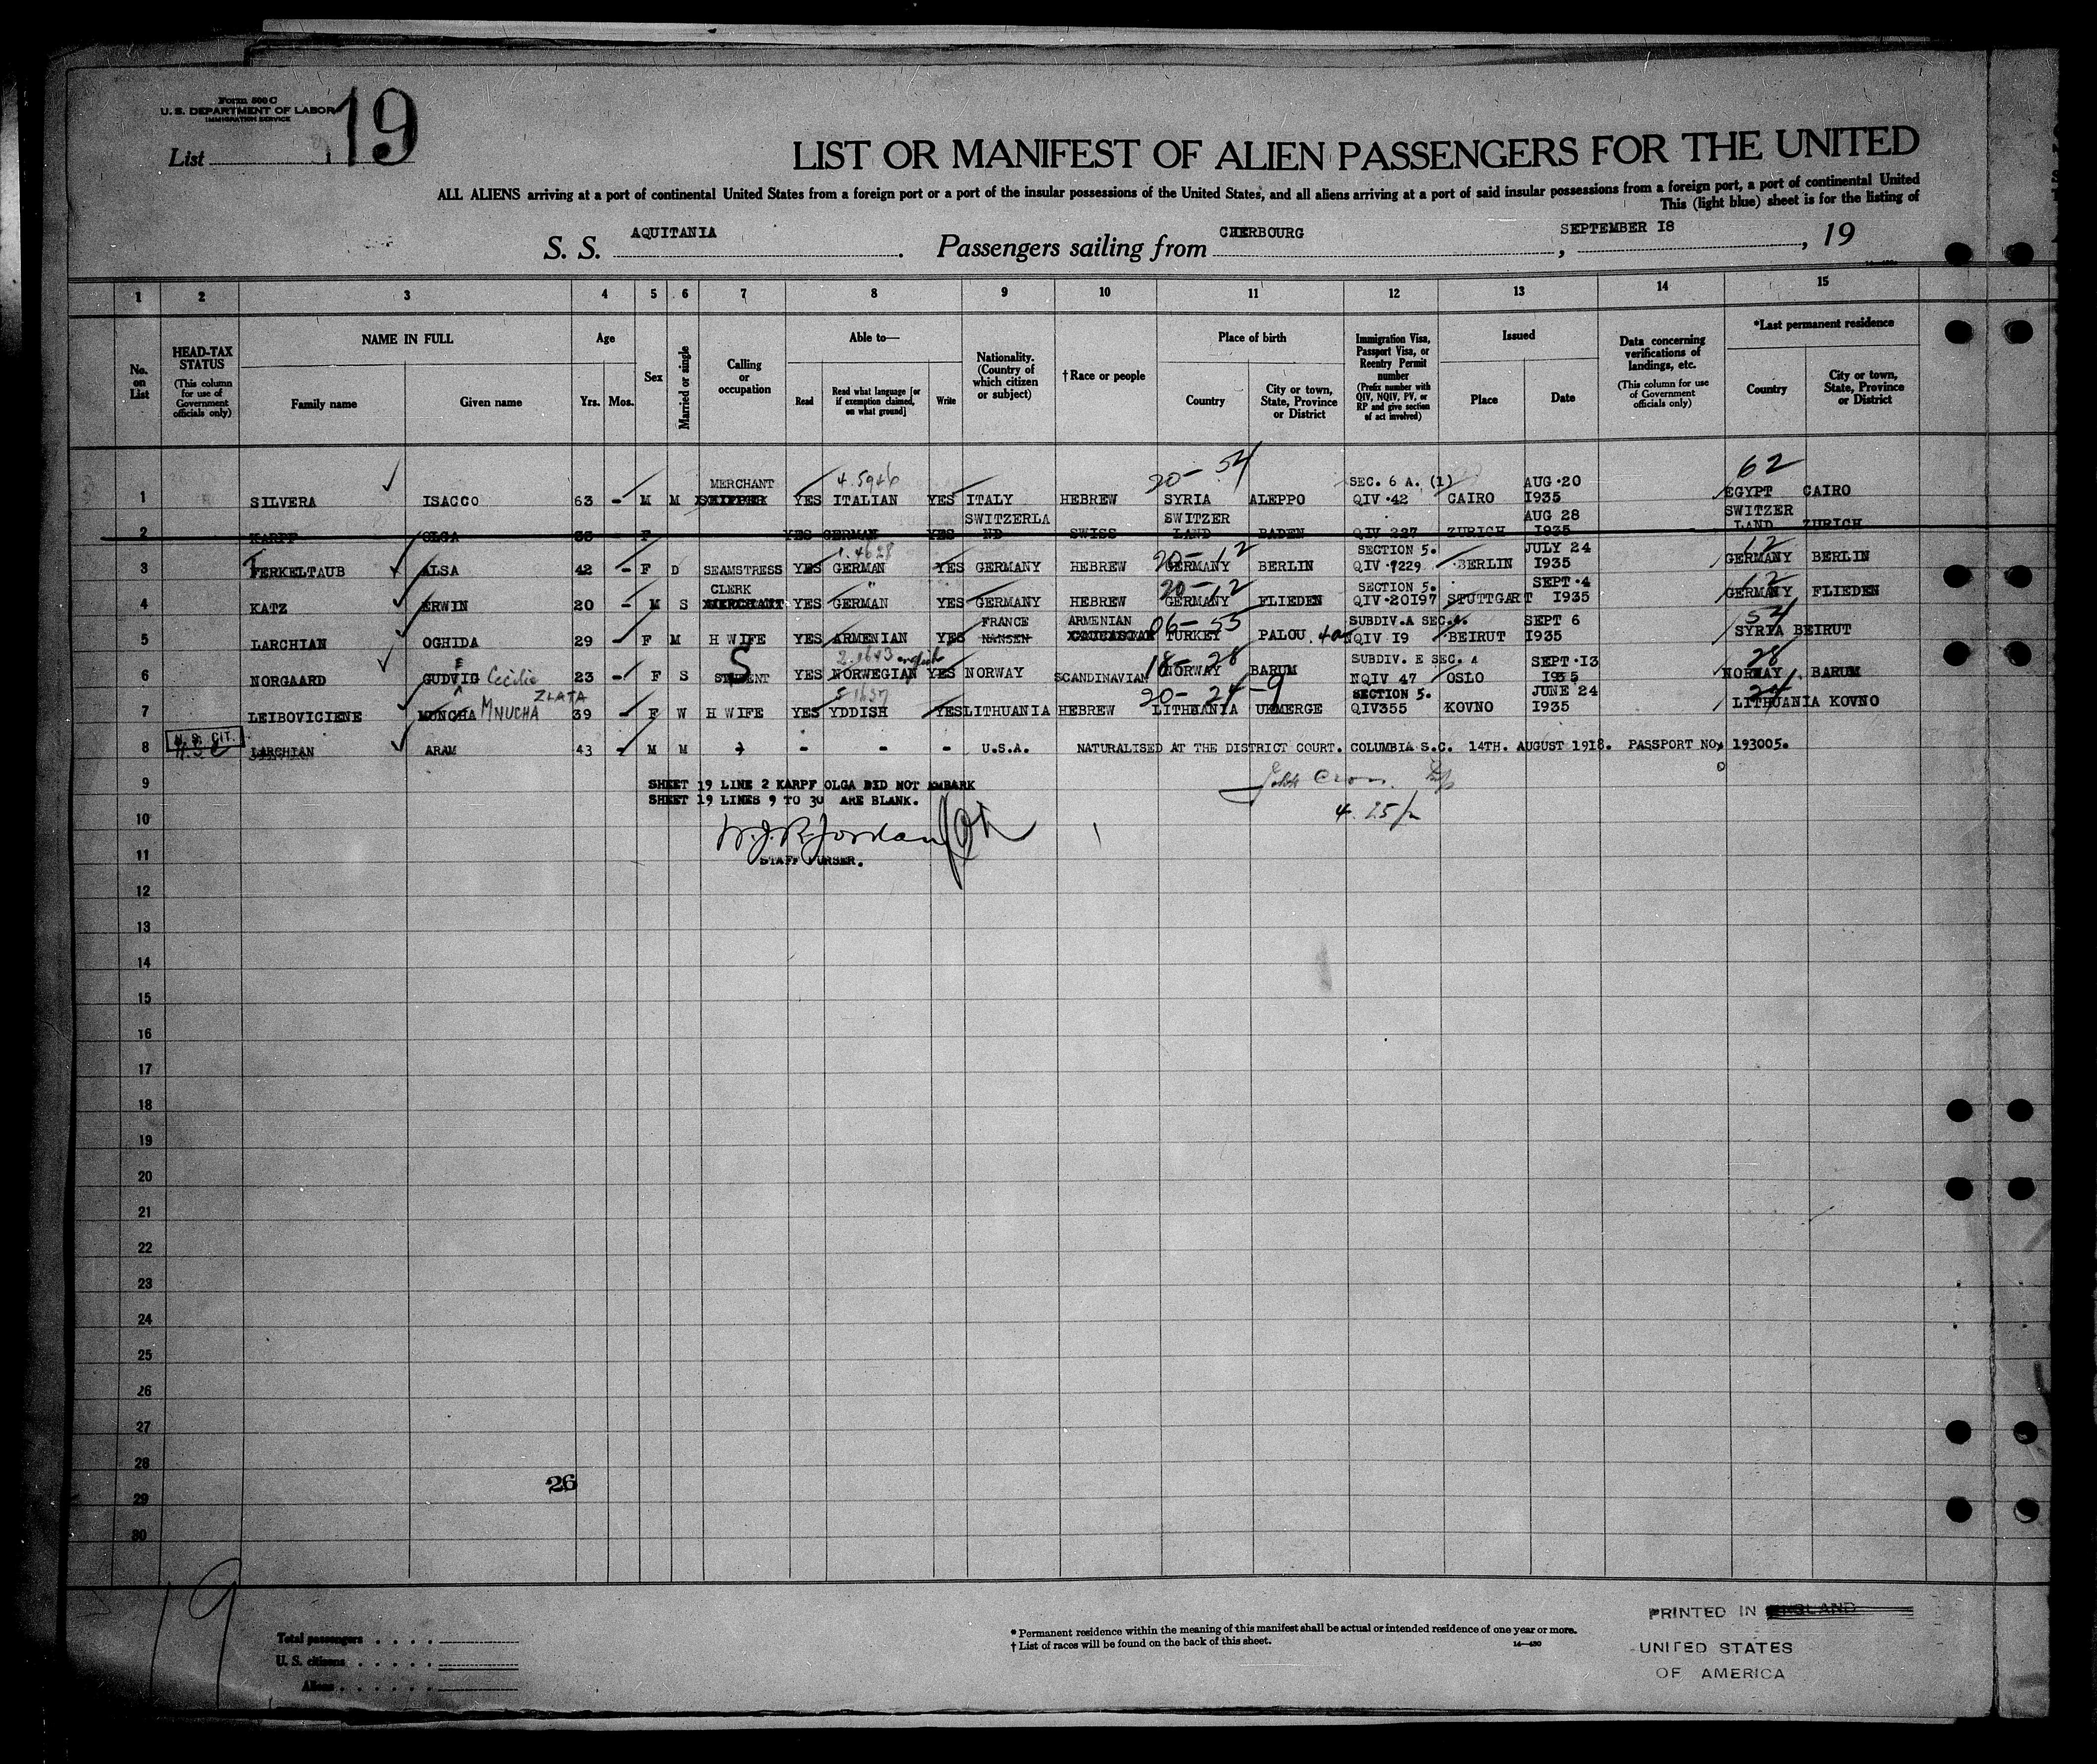 Form 500 C
U. S. DEPARTMENT OF LABOR
IMMIGRATION SERVICE
List 19
LIST OR MANIFEST OF ALIEN PASSENGERS FOR THE UNITED
ALL ALIENS arriving at a port of continental United States from a foreign port or a port of the insular possessions of the United States, and all aliens arriving at a port of said insular possessions from a foreign port, a port of continental United
This (light blue) sheet is for the listing of
S. S. AQUITANIA. Passengers sailing from CHERBOURG, SEPTEMBER I8, 19
1 2 3 4 5 6 7 8 9 10 11 12 13 14 15
No. on List
HEAD-TAX STATUS (This column for use of Government officials only)
NAME IN FULL Family name Given name
Age Yrs. Mos.
Sex
Married or single
Calling or occupation
Able to— Read Read what language [or if exemption claimed, on what ground] Write
Nationality. (Country of which citizen or subject)
†Race or people
Place of birth Country City or town, State, Province or District
Immigration Visa, Passport Visa, or Reentry Permit number (Prefix number with QIV, NQIV, PV, or RP and give section of act involved)
Issued Place Date
Data concerning verifications of landings, etc. (This column for use of Government officials only)
*Last permanent residence Country City or town, State, Province or District
MERCHANT 4.5946 20- 54 SEC. 6 A. (1) AUG 20 62
1 SILVERA ISACCO 63 - M M SKIPPER YES ITALIAN YES ITALY HEBREW SYRIA ALEPPO QIV 42 CAIRO I935 EGYPT CAIRO
SWITZERLA SWITZER AUG 28 SWITZER
2 KARPF OLGA 33 F YES GERMAN YES ND SWISS LAND BADEN QIV 227 ZURICH I935 LAND ZURICH
1.4628 20-12 SECTION 5. JULY 24 12
3 FERKELTAUB ALSA 42 - F D SEAMSTRESS YES GERMAN YES GERMANY HEBREW GERMANY BERLIN QIV 7229 BERLIN I935 GERMANY BERLIN
CLERK " 20-12 SECTION 5. SEPT 4 12
4 KATZ ERWIN 20 - M S MERCHANT YES GERMAN YES GERMANY HEBREW GERMANY FLIEDEN QIV 20I97 STUTTGART I935 GERMANY FLIEDEN
FRANCE ARMENIAN 06-53 SUBDIV.A SEC.4. SEPT 6 54
5 LARCHIAN OGHIDA 29 - F M H WIFE YES ARMENIAN YES NANSEN CAUCASIAN TURKEY PALOU 4a NQIV I9 BEIRUT I935 SYRIA BEIRUT
E S 2.1643 english 18-28 SUBDIV. E SEC. 4 SEPT 13 28
6 NORGAARD GUDVIG Cecilie 23 - F S STUDENT YES NORWEGIAN YES NORWAY SCANDINAVIAN NORWAY BARUM NQIV 47 OSLO I935 NORWAY BARUM
ZLATA 5 1637 20-24-9 SECTION 5. JUNE 24 24
7 LEIBOVICIENE MUNCHA MNUCHA 39 - F W H WIFE YES YDDISH YES LITHUANIA HEBREW LITHUANIA UKMERGE QIV355 KOVNO I935 LITHUANIA KOVNO
U. S. CIT.
8 LARCHIAN ARAM 43 - M M - - - U.S.A. NATURALISED AT THE DISTRICT COURT. COLUMBIA S.C. 14TH. AUGUST 1918. PASSPORT NO. 193005.
9 SHEET 19 LINE 2 KARPF OLGA DID NOT EMBARK
SHEET 19 LINES 9 TO 30 ARE BLANK.
10 W.J.R. Jordan
11 STAFF PURSER.
12
13
14
15
16
17
18
19
20
21
22
23
24
25
26
27
28
26
29
30
19
Total passengers
U. S. citizens
Aliens
* Permanent residence within the meaning of this manifest shall be actual or intended residence of one year or more.
† List of races will be found on the back of this sheet. 14—430
PRINTED IN ENGLAND
UNITED STATES
OF AMERICA